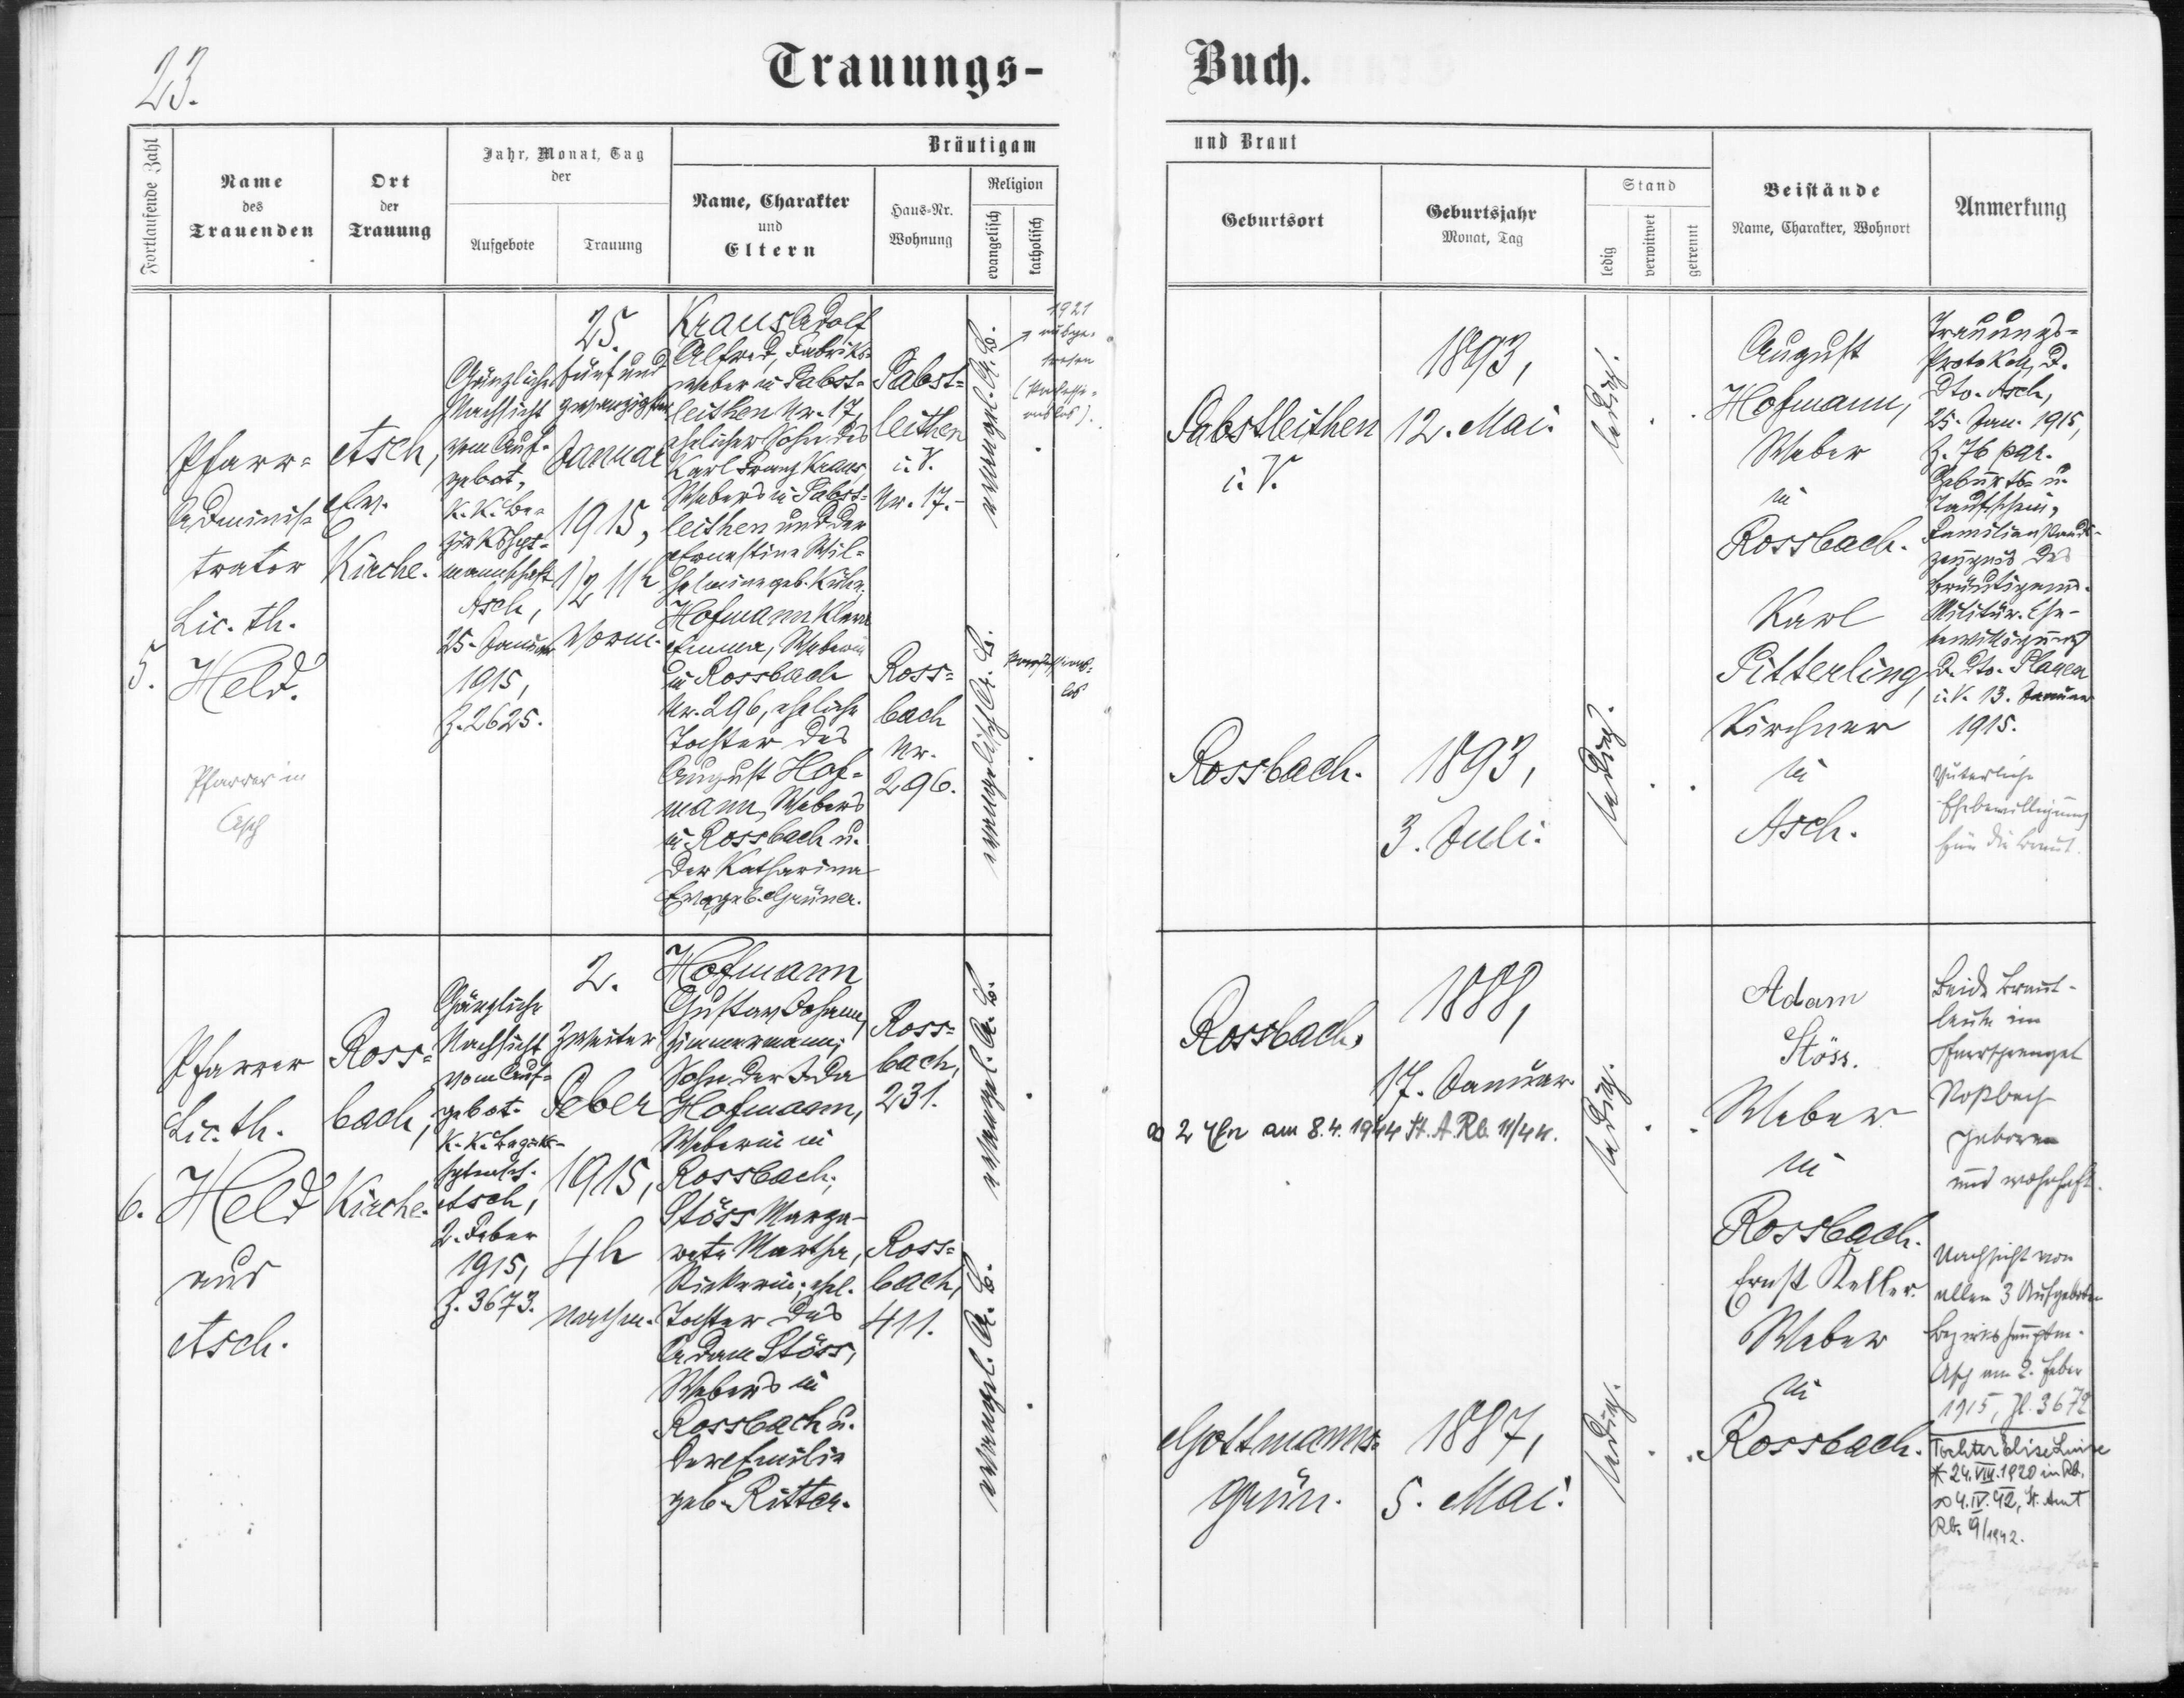 23.
Trauungs-
Buch.
Fortlaufende Zahl
Name
des
Trauenden
Ort
der
Trauung
Jahr, Monat, Tag
der
Aufgebote
Trauung
Bräutigam
Name, Charakter
und
Eltern
Haus-Nr.
Wohnung
Religion
evangelisch
katholisch
und Braut
Geburtsort
Geburtsjahr
Monat, Tag
Stand
ledig
verwitwet
getrennt
Beistände
Name, Charakter, Wohnort
Anmerkung
5.
Pfarr-
Adminis-
trator
Lic. th.
Held.
Pfarrer in
Asch
Asch,
Ev.
Kirche.
Gänzliche
Nachsicht
vom Auf-
gebot,
K. K. Be-
zirkshpt-
mannschaft
Asch,
25. Januar
1915,
Z. 2625.
25.
fünfund
zwanzigster
Januar
1915,
1/2 11h
Vorm.
Kraus Adolf
Alfred, Fabriks-
weber in Pabst-
leithen Nr. 17,
ehelicher Sohn des
Karl Franz Kraus
Webers in Pabst-
leithen und der
Ernestine Wil-
helmine geb. Kühn.
Hofmann Klara
Emma, Weberin
in Rossbach
Nr. 296, eheliche
Tochter des
August Hof-
mann, Webers
in Rossbach u.
der Katharina
Eva geb. Grüner.
Pabst-
leithen
i. V.
Nr. 17.-
Ross-
bach
Nr.
296.
evangel. A. B.
evangelisch A. B.
1921
ausge-
treten
(Konfessi-
onslos).
Konfessions-
los
Pabstleithen
i. V.
1893,
12. Mai.
ledig.
Rossbach.
1893,
3. Juli.
ledig.
August
Hofmann,
Weber
in
Rossbach.
Karl
Pitterling,
Kirchner
in
Asch.
Trauungs-
Protokoll, D.
Dto. Asch,
25. Jan. 1915,
Z. 76 par.
Geburts- u.
Taufschein,
Familienstands-
zeugnis des
Bräutigams.
Militär. Ehe-
bewilligung
D. Dto. Plauen
i. V. 13. Januar
1915.
Väterliche
Ehebewilligung
für die Braut.
6.
Pfarrer
Lic. th.
Held
aus
Asch.
Ross-
bach,
Kirche.
Gänzliche
Nachsicht
vom Auf-
gebot.
K. K. Bezirks-
Asch,
2. Feber
1915,
Z. 3673.
2.
Zweiter
Feber
1915,
4h
Nachm.
Hofmann
Gustav Johann,
Zimmermann,
Sohn der Ida
Hofmann,
Weberin in
Rossbach;
Stöss Marga-
rete Martha,
Stickerin, ehel.
Tochter des
Adam Stöss,
Webers in
Rossbach u.
der Emilie
geb. Ritter.
Ross-
bach,
231.
Ross-
bach,
411.
evangel. A. B.
evangel. A. B.
Rossbach.
1888,
17. Januar.
∞ 2 Ehe am 8.4.1944 St. A. Rb. 11/44.
ledig.
Gottmanns-
grün.
1887,
5. Mai.
ledig.
Adam
Stöss.
Weber
in
Rossbach.
Ernst Keller.
Weber
in
Rossbach.
Beide Braut-
leute im
Pfarrsprengel
Roßbach
geboren
und wohnhaft.
Nachsicht von
allen 3 Aufgeboten
Bezirkshauptm.
Asch am 2. Feber
1915, Zl. 3672
Tochter Elise Luise
* 24.VIII.1920 in Rb.
∞ 4.IV.42, St. Amt
Rb. 9/1942.